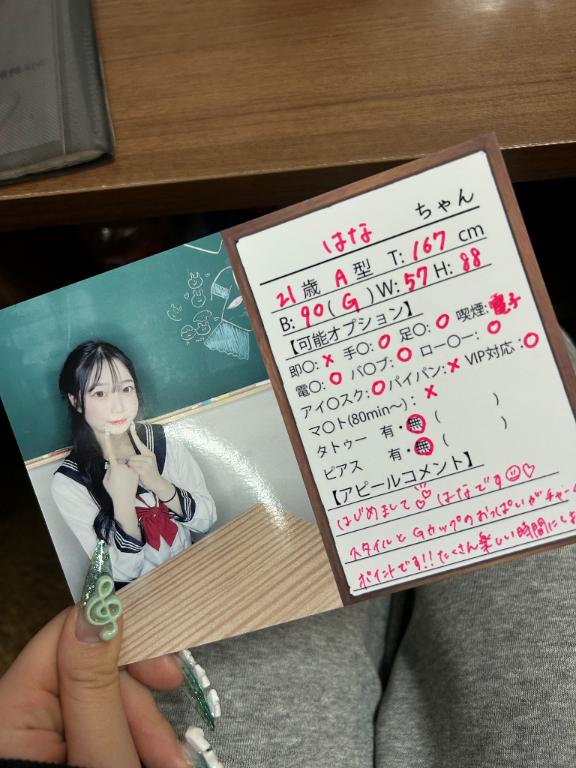 はな ちゃん
21歳 A型 T:167cm
B:90(G)W:57H:88
【可能オプション】
即〇:× 手〇:〇 足〇:〇 喫煙:電子
電〇:〇 バ〇ブ:〇 ロー〇ー:〇
アイ〇スク:〇 パイパン:× VIP対応:〇
マ〇ト(80min〜):×
タトゥー 有・無( )
ピアス 有・無( )
【アピールコメント】
はじめまして♡はなです☺♡
スタイルとGカップのおっぱいがチャー
ポイントです!!たくさん楽しい時間にしよ